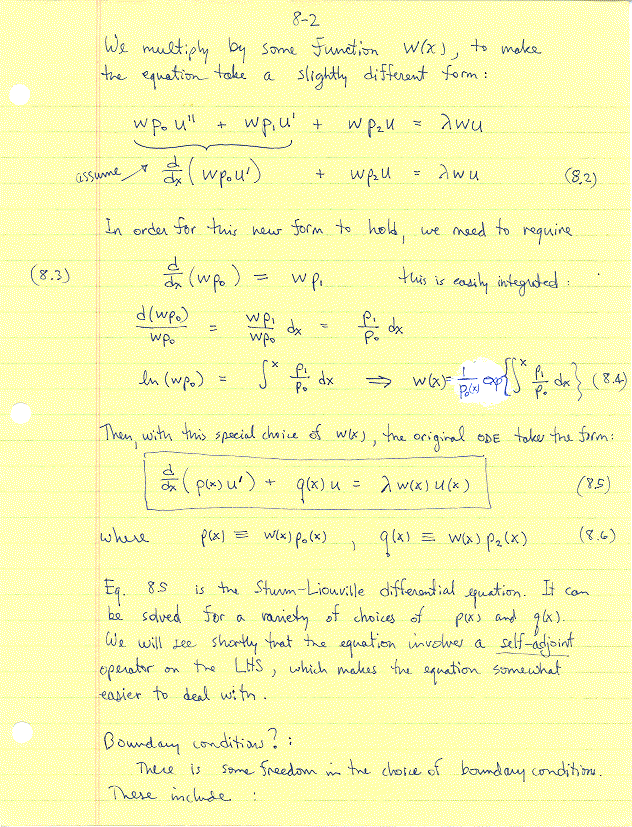 8-2
We multiply by some function w(x), to make
the equation take a slightly different form:
wp₀u'' + wp₁u' + wp₂u = λwu
assume d/dx (wp₀u') + wp₂u = λwu (8.2)
In order for this new form to hold, we need to require
(8.3) d/dx (wp₀) = wp₁ this is easily integrated:
d(wp₀)/wp₀ = wp₁/wp₀ dx = p₁/p₀ dx
ln(wp₀) = ∫ˣ p₁/p₀ dx ⇒ w(x) = 1/p₀(x) exp{∫ˣ p₁/p₀ dx} (8.4)
Then, with this special choice of w(x), the original ODE takes the form:
d/dx (p(x)u') + q(x)u = λw(x)u(x) (8.5)
where p(x) ≡ w(x)p₀(x) , q(x) ≡ w(x)p₂(x) (8.6)
Eq. 8.5 is the Sturm-Liouville differential equation. It can
be solved for a variety of choices of p(x) and q(x).
We will see shortly that the equation involves a self-adjoint
operator on the LHS, which makes the equation somewhat
easier to deal with.
Boundary conditions?:
There is some freedom in the choice of boundary conditions.
These include :